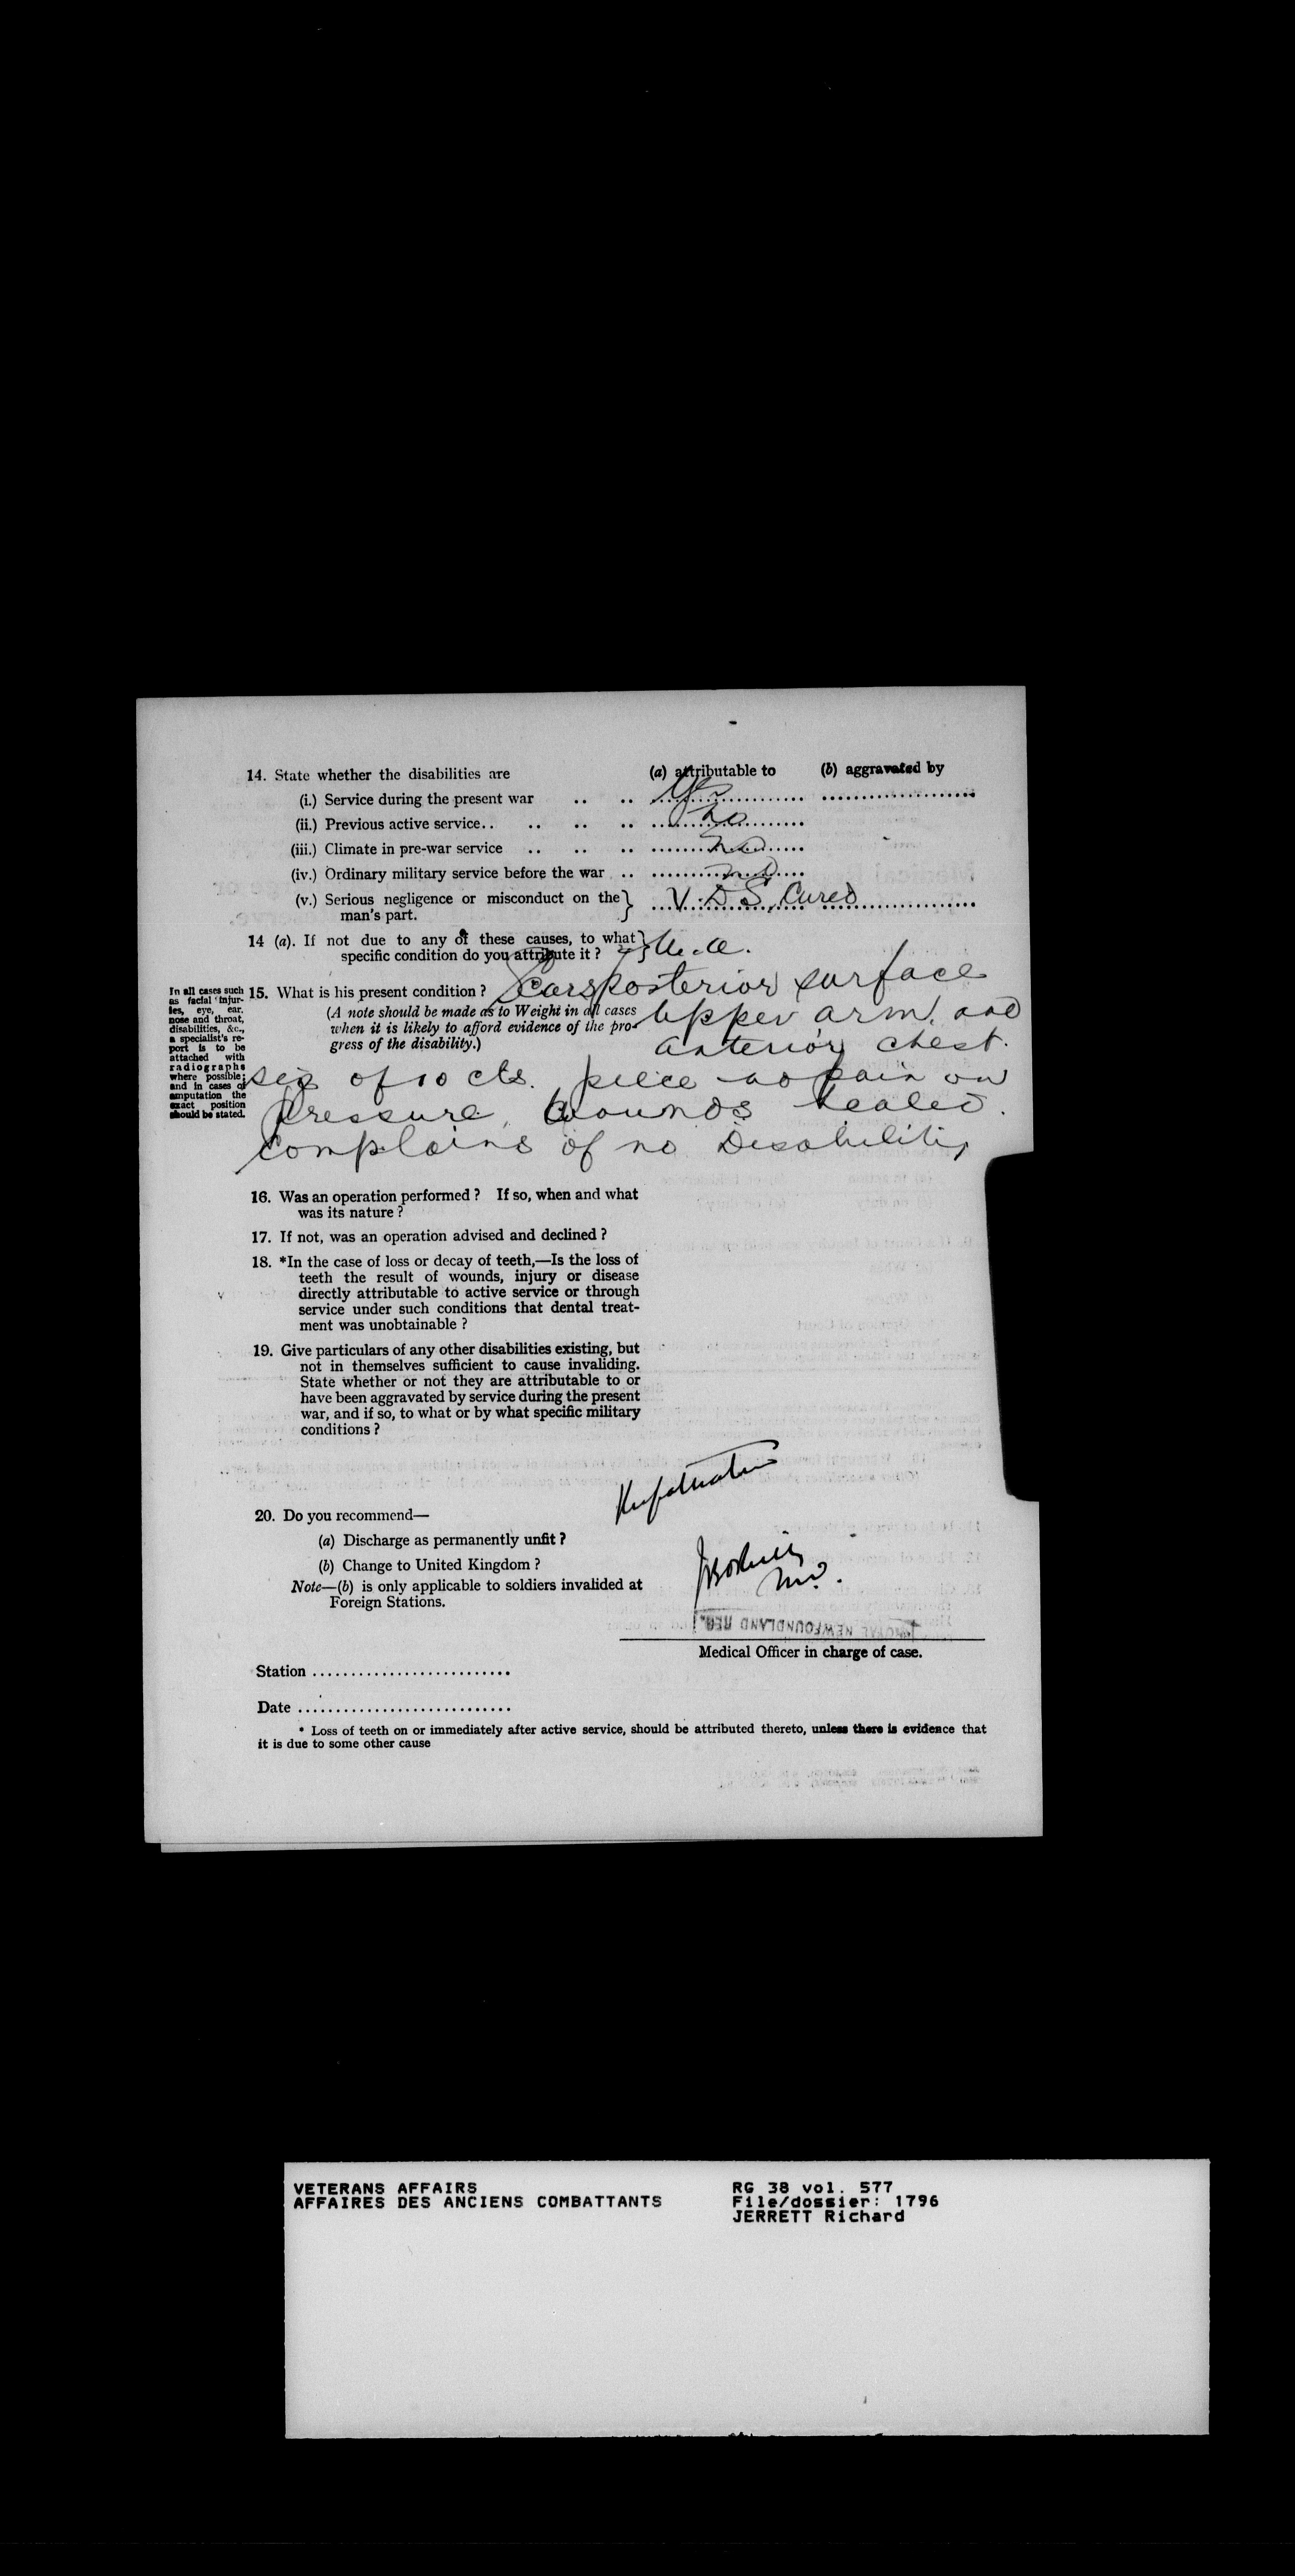 14. State whether the disabilities are (a) attributable to (b) aggravated by
(i.) Service during the present war .. .. Yes
(ii.) Previous active service.. .. .. .. no
(iii.) Climate in pre-war service .. .. .. no
(iv.) Ordinary military service before the war .. no
(v.) Serious negligence or misconduct on the man's part. } V.D.S. Cured
14 (a). If not due to any of these causes, to what
specific condition do you attribute it ? }
15. What is his present condition ? Scars posterior surface
(A note should be made as to Weight in all cases upper arm, and
when it is likely to afford evidence of the pro-
gress of the disability.) anterior chest.
In all cases such
as facial injur-
ies, eye, ear,
nose and throat,
disabilities, &c.,
a specialist's re-
port is to be
attached with
radiographs
where possible;
and in cases of
amputation the
exact position
should be stated.
of 10 cts. piece no pain on
pressure, wounds healed.
complains of no Disability
16. Was an operation performed ? If so, when and what
was its nature ?
17. If not, was an operation advised and declined ?
18. *In the case of loss or decay of teeth,—Is the loss of
teeth the result of wounds, injury or disease
directly attributable to active service or through
service under such conditions that dental treat-
ment was unobtainable ?
19. Give particulars of any other disabilities existing, but
not in themselves sufficient to cause invaliding.
State whether or not they are attributable to or
have been aggravated by service during the present
war, and if so, to what or by what specific military
conditions ?
Repatriation
20. Do you recommend—
(a) Discharge as permanently unfit ?
(b) Change to United Kingdom ?
Note—(b) is only applicable to soldiers invalided at
Foreign Stations.
M.D.
NEWFOUNDLAND REG.
Medical Officer in charge of case.
Station ..........................
Date ............................
* Loss of teeth on or immediately after active service, should be attributed thereto, unless there is evidence that
it is due to some other cause
VETERANS AFFAIRS RG 38 vol. 577
AFFAIRES DES ANCIENS COMBATTANTS File/dossier: 1796
JERRETT Richard